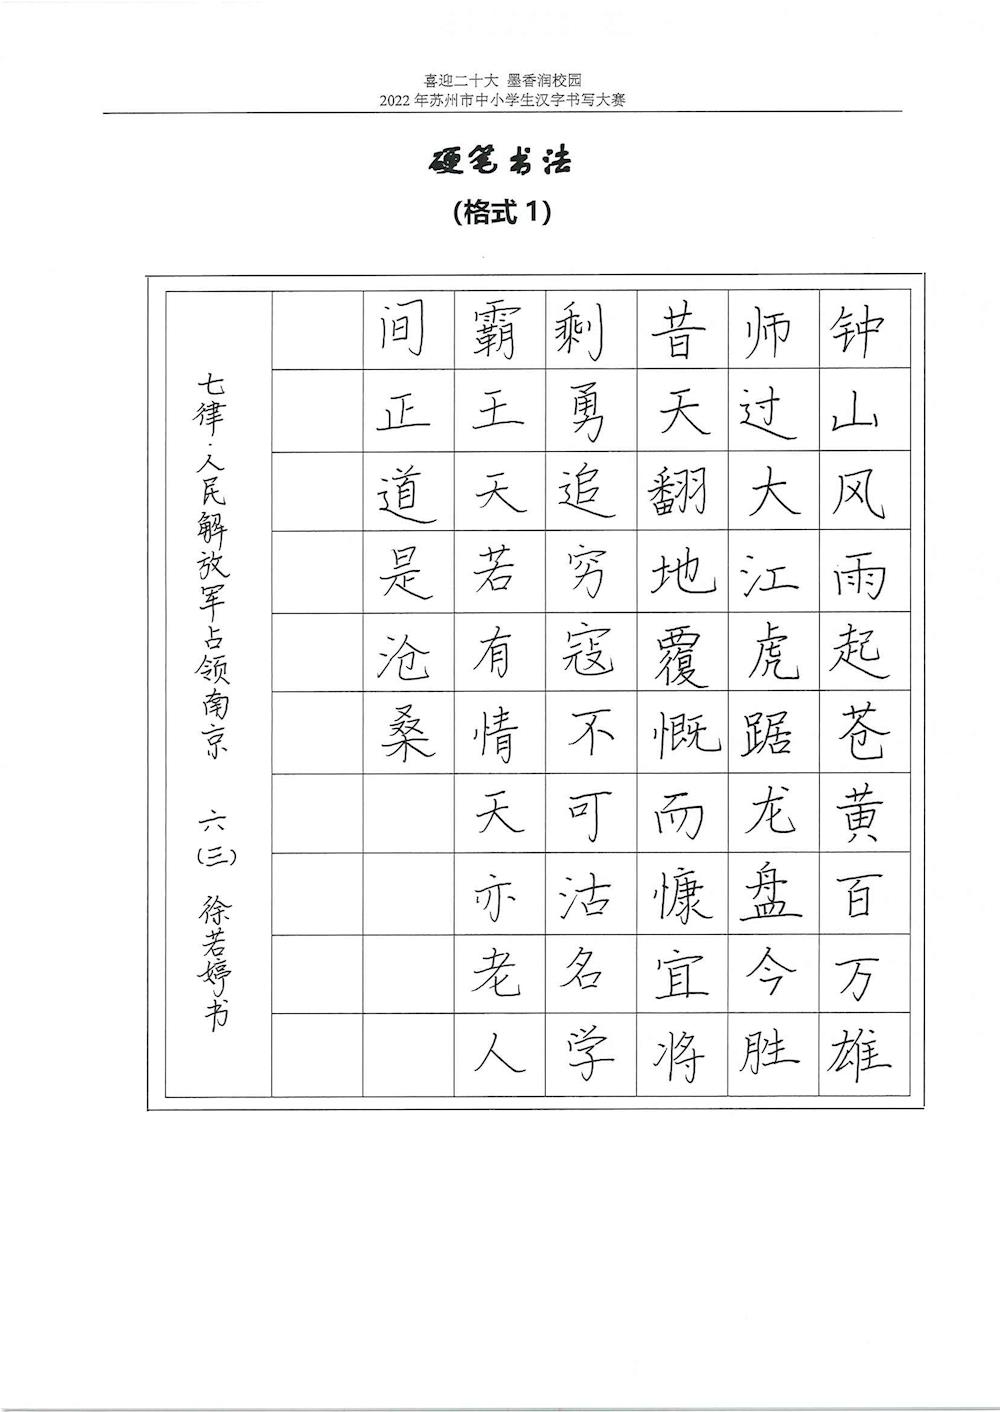 喜迎二十大 墨香润校园
2022年苏州市中小学生汉字书写大赛
硬笔书法
(格式1)
钟山风雨起苍黄百万雄
师过大江虎踞龙盘今胜
昔天翻地覆慨而慷宜将
剩勇追穷寇不可沽名学
霸王天若有情天亦老人
间正道是沧桑
七律·人民解放军占领南京 六(三) 徐若婷书